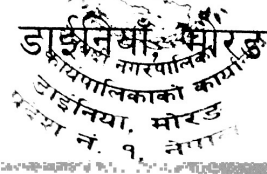 डाईनियाँ, मोरङ
नगरपालिका
कार्यपालिकाको कार्या
डाईनिया, मोरङ
प्रदेश नं. १, नेपाल